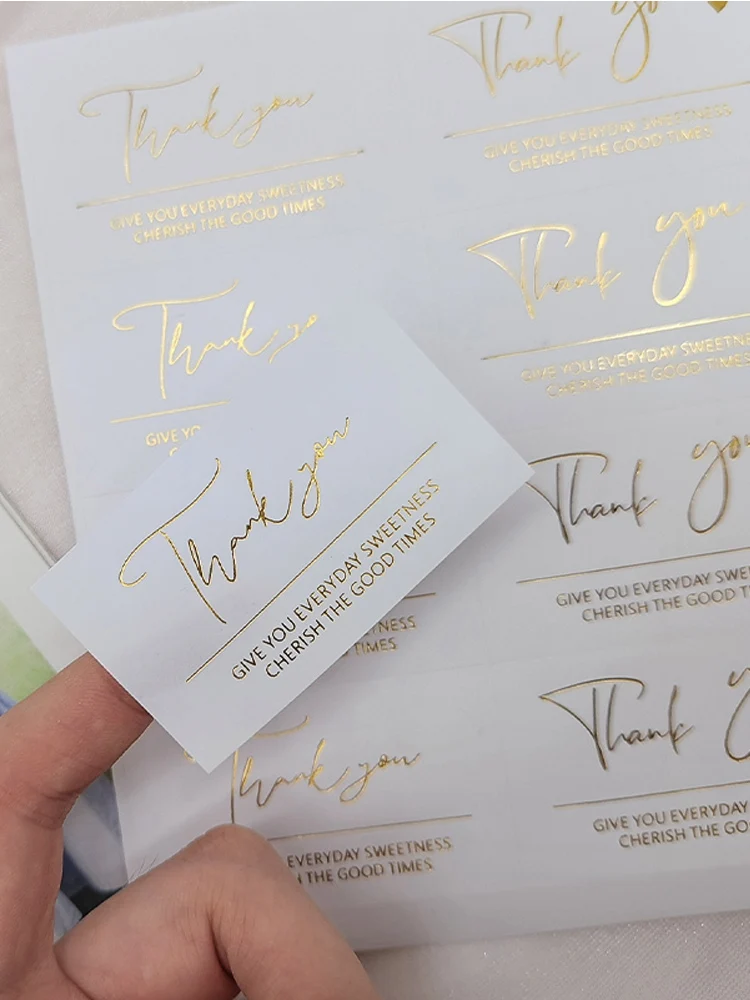 Thank you
GIVE YOU EVERYDAY SWEETNESS
CHERISH THE GOOD TIMES
Thank yo
GIVE YOU EVERYDAY SWEETNESS
CHERISH THE GOOD TIMES
Thank yo
GIVE YO
Thank you
GIVE YOU EVERYDAY SWEETNESS
CHERISH THE GOOD TIMES
Thank you
GIVE YOU EVERYDAY SWEETNESS
CHERISH THE GOOD TIMES
Thank you
GIVE YOU EVERYDAY SWEE
CHERISH THE GOOD TI
TNESS
TIMES
Thank you
EVERYDAY SWEETNESS
THE GOOD TIMES
Thank y
GIVE YOU EVERYDAY
CHERISH THE GO